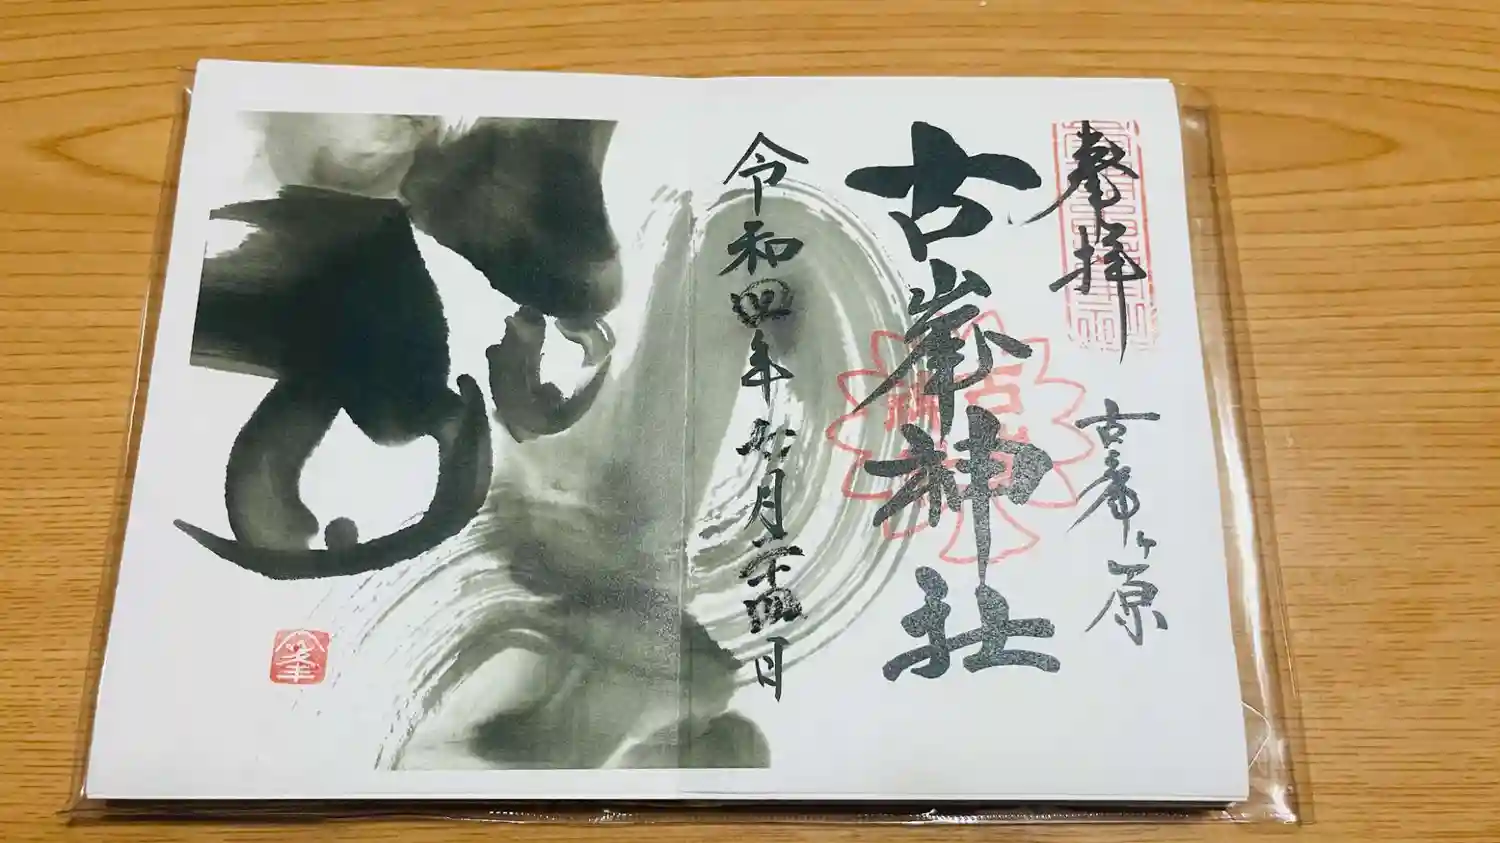 奉拝
古希ヶ原
古峯神社
令和四年七月二十四日